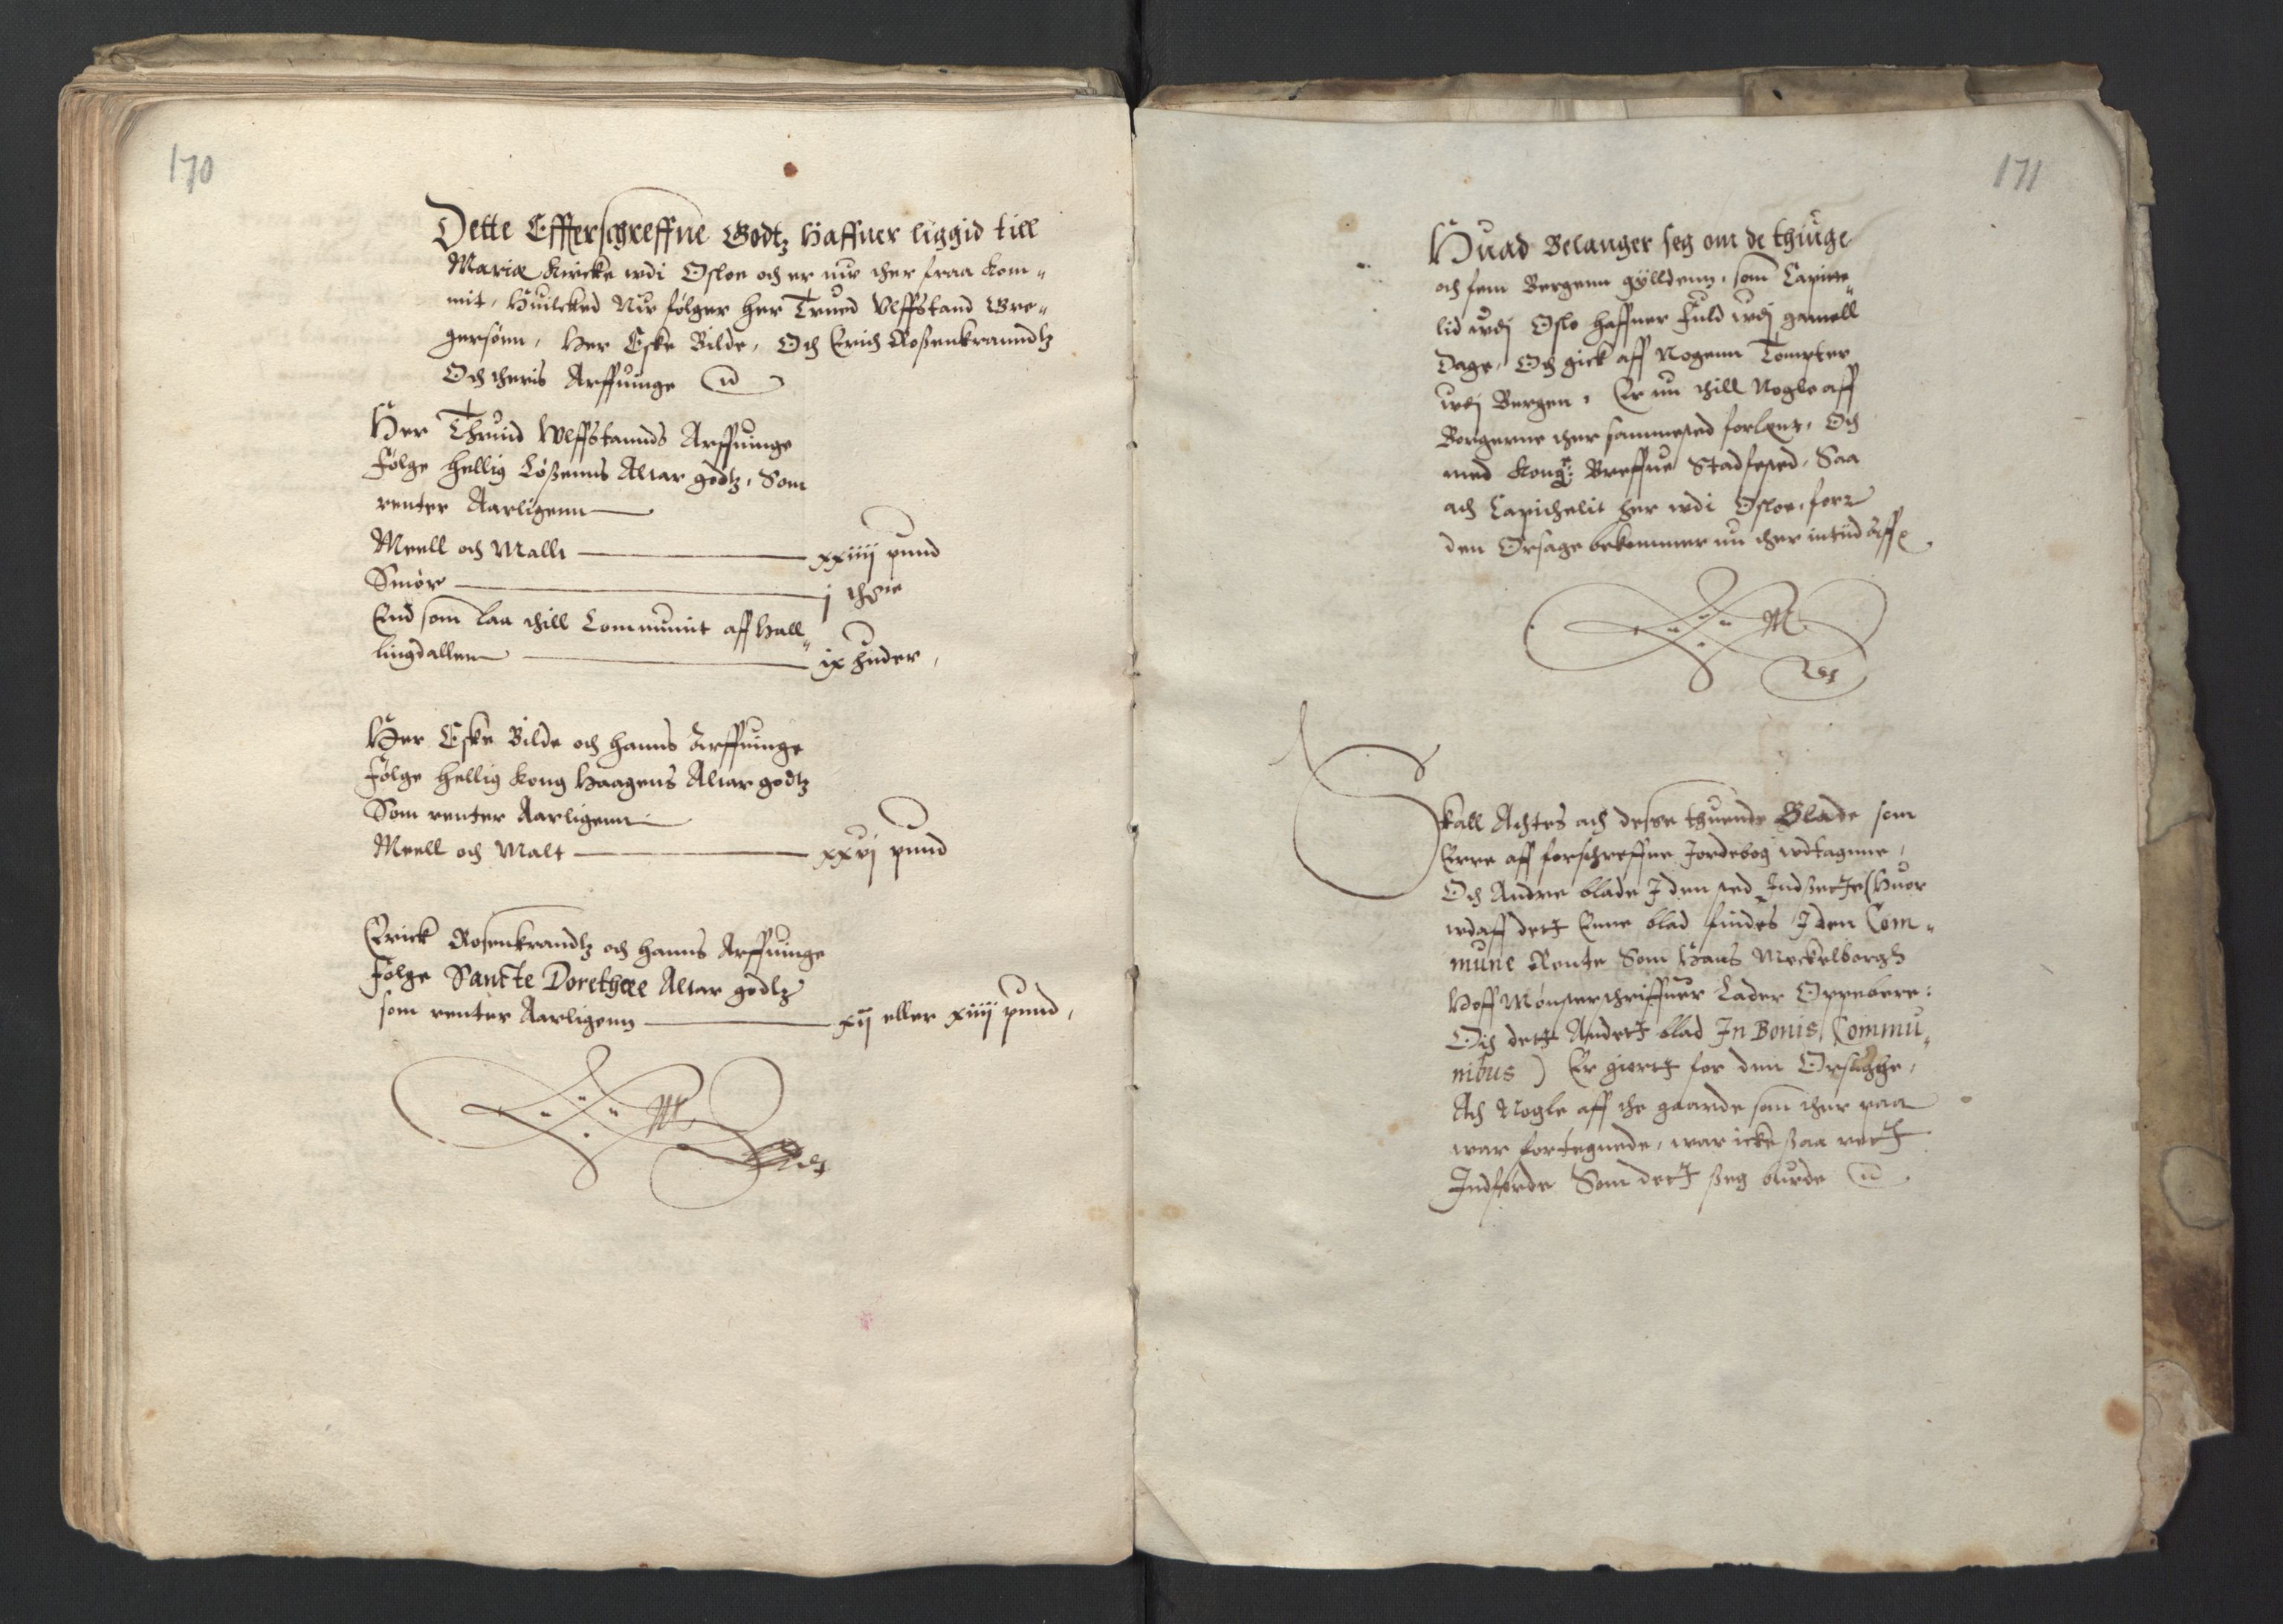 170
Dette Effterschreffne Godtz Haffuer liggid till
Mariæ Kircke wdi Osloe och er nw ther fraa kom„
mit, Huilcked Nw følger her Trued Vlffstand Gre„
gersønn, Her Eske Bilde, Och Erich Roßenkranndtz
Och theris Arffuinge
Her Thruid Wlffstannds Arffuinge
følge hellig Løßenns Altar godtz, Som
renter Aarligenn
Meell och Mallt xxiiij pund
Smør j
End som laa thill Communit aff Hall„
lingdallen ix huder,
Her Eske Bilde och hanns Arffuinge
følge hellig Kong Haagens Altar godtz
Som renter Aarligenn
Meell och Malt xxvj pund
Erick Rosenkrandtz och hanns Arffuinge
følge Sancte Dorethee Altar godtz
som renter Aarligenn xij eller xiiij pund,
171
Huad Belanger seg om de thiuge
och fem Bergenn gylldenn, som Capitte„
lid wdj Oslo haffuer fuld wdj gamell
dage, Och gick aff Nogenn Tompter
wdj Bergen, Er nu thill Nogle aff
Borgerne ther sammested forlent, Och
med Kong: Breffue Stadfested, Saa
ath Capithelit her wdi Osloe, for
den Orsage bekommer nu ther inttid aff
Skall Achtes ath desse thuende Blade som
Erre aff forschreffne Jordebog wdtagnne,
Och Andre blade J den sted Jndsette (Huor
wdaff dett Enne blad findes J den Com„
mune Rente Som Hans Meckelborgh
Hoff Mønsterschriffuer Lader Oppebere:
Och dett Andett blad In Bonis Commu„
nibus) Er giortt for den Orsaghe,
Ath Nogle aff the gaarde som ther paa
war fortegnede, war icke saa rett
Jndførde Som dett seg burde